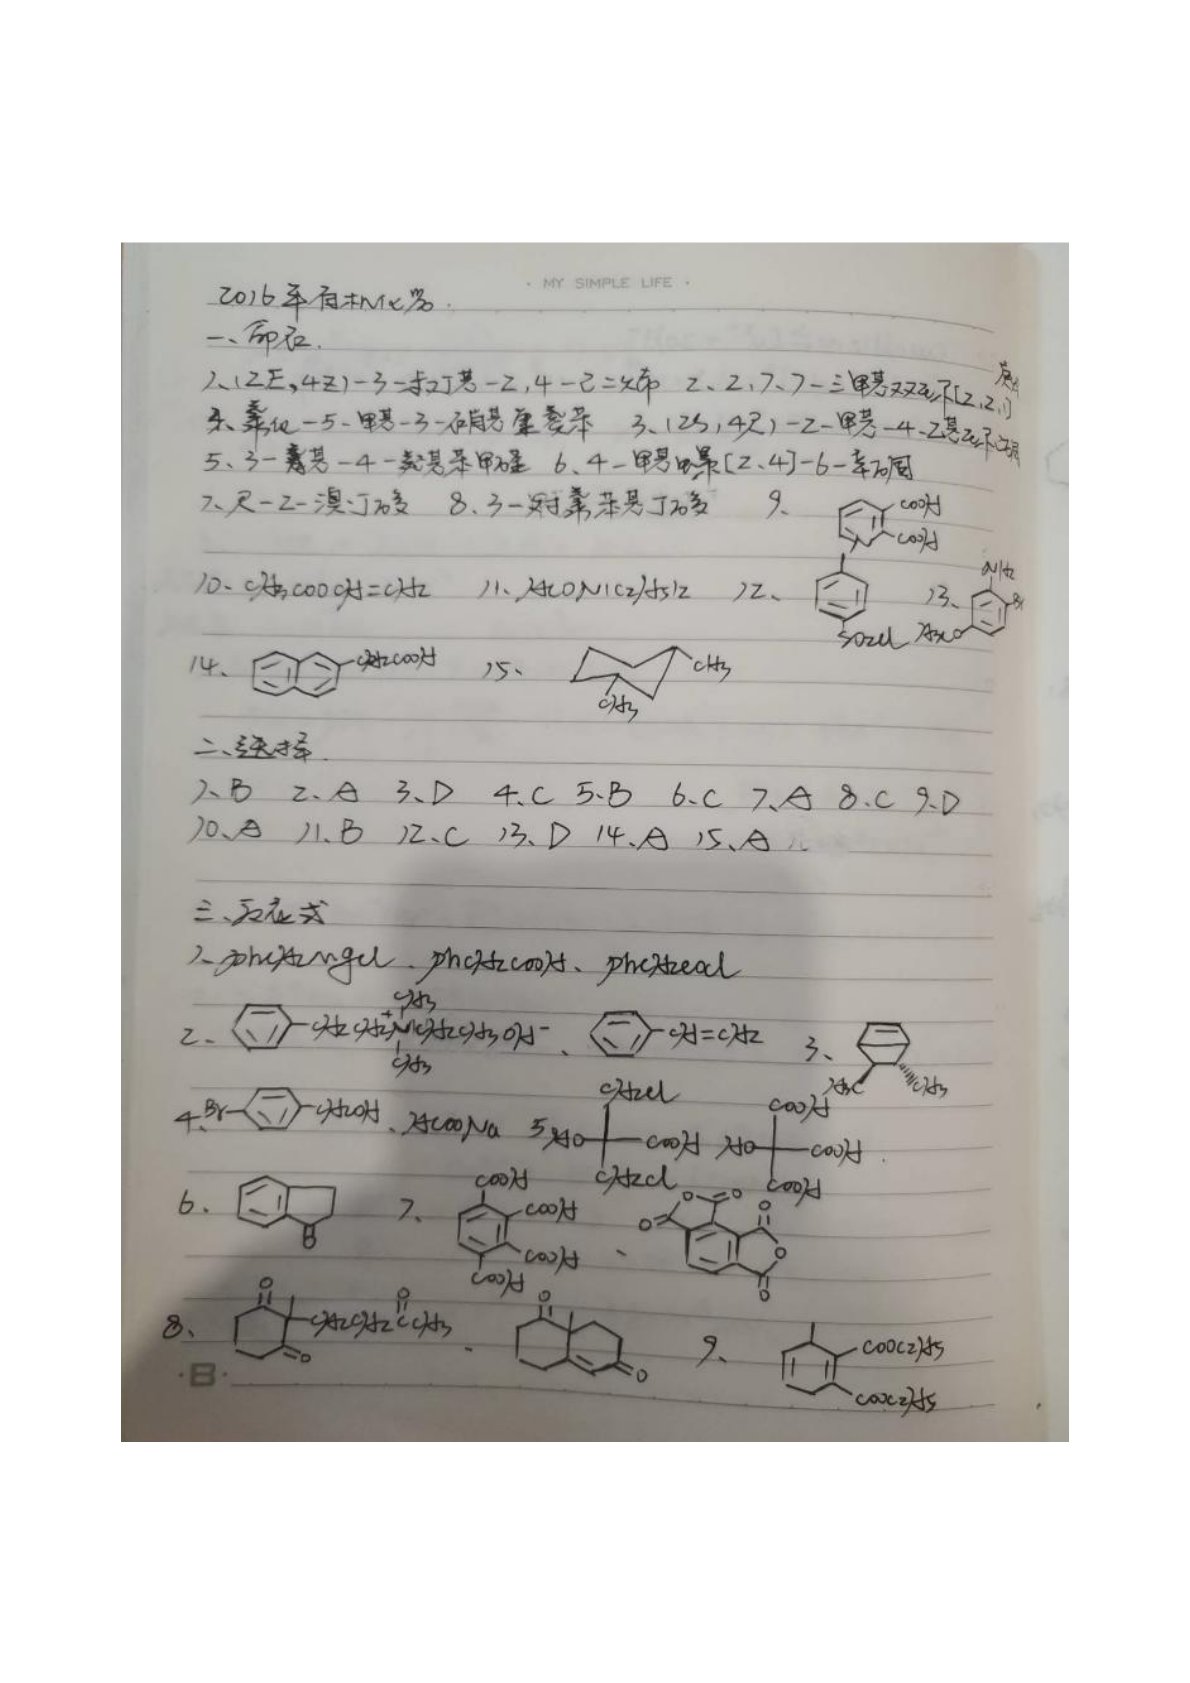 · MY SIMPLE LIFE ·
2016年有机化学.
一、命名.
1、(2E,4Z)-3-叔丁基-2,4-己二烯 2、2,7,7-三甲基双环[2,2,1]庚
-5-甲基-3-硝基 3、(2S,4R)-2-甲基-4-乙基环
5、3-基-4-羟基苯甲醛 6、4-甲基螺[2.4]-6-辛酮
7、R-2-溴丁 8、3-对苯基丁 9、
COOH
COOH
10、CH3COOCH=CH2 11、HCON(C2H5)2 12、 13、
NH2
Br
SO2Cl
14、 CH2COOH 15、 CH3
CH3
二、选择.
1、B 2、A 3、D 4、C 5、B 6、C 7、A 8、C 9、D
10、A 11、B 12、C 13、D 14、A 15、A
三、反应式
1、PhCH2MgCl、PhCH2COOH、PhCH2COCl
CH3
2、 CH2CH2N+CH2CH2CH3OH-、 CH=CH2 3、
CH3
H3C CH3
4、Br CH2OH、HCOONa 5、HO COOH HO COOH
CH2Cl COOH
CH2Cl COOH
6、 O 7、 COOH
COOH
COOH
COOH
O O O O O O
8、 O CH2CH2CCH3 O O 、 O O 9、 COOC2H5
COOC2H5
·B·